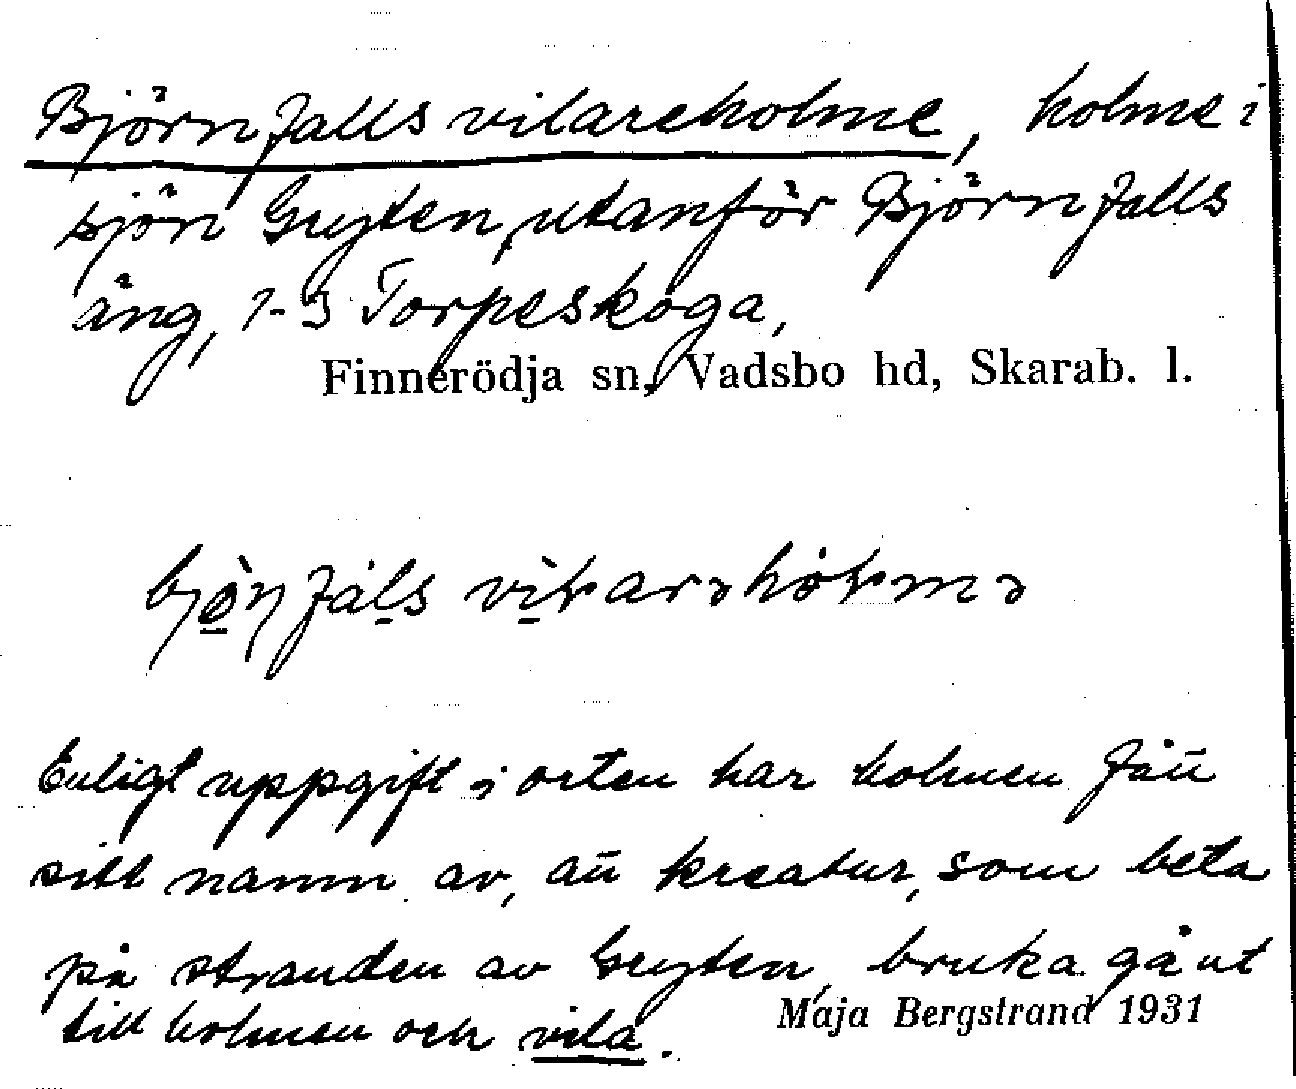 Björnfalls vilareholme, holme i
sjön Gryten, utanför Björnfalls
äng, 1-3 Torpeskoga,
Finnerödja sn, Vadsbo hd, Skarab. l.
Enligt uppgift i orten har holmen fått
sitt namn av, att kreatur, som beta
på stranden av Gryten, bruka gå ut
till holmen och vila.
Maja Bergstrand 1931